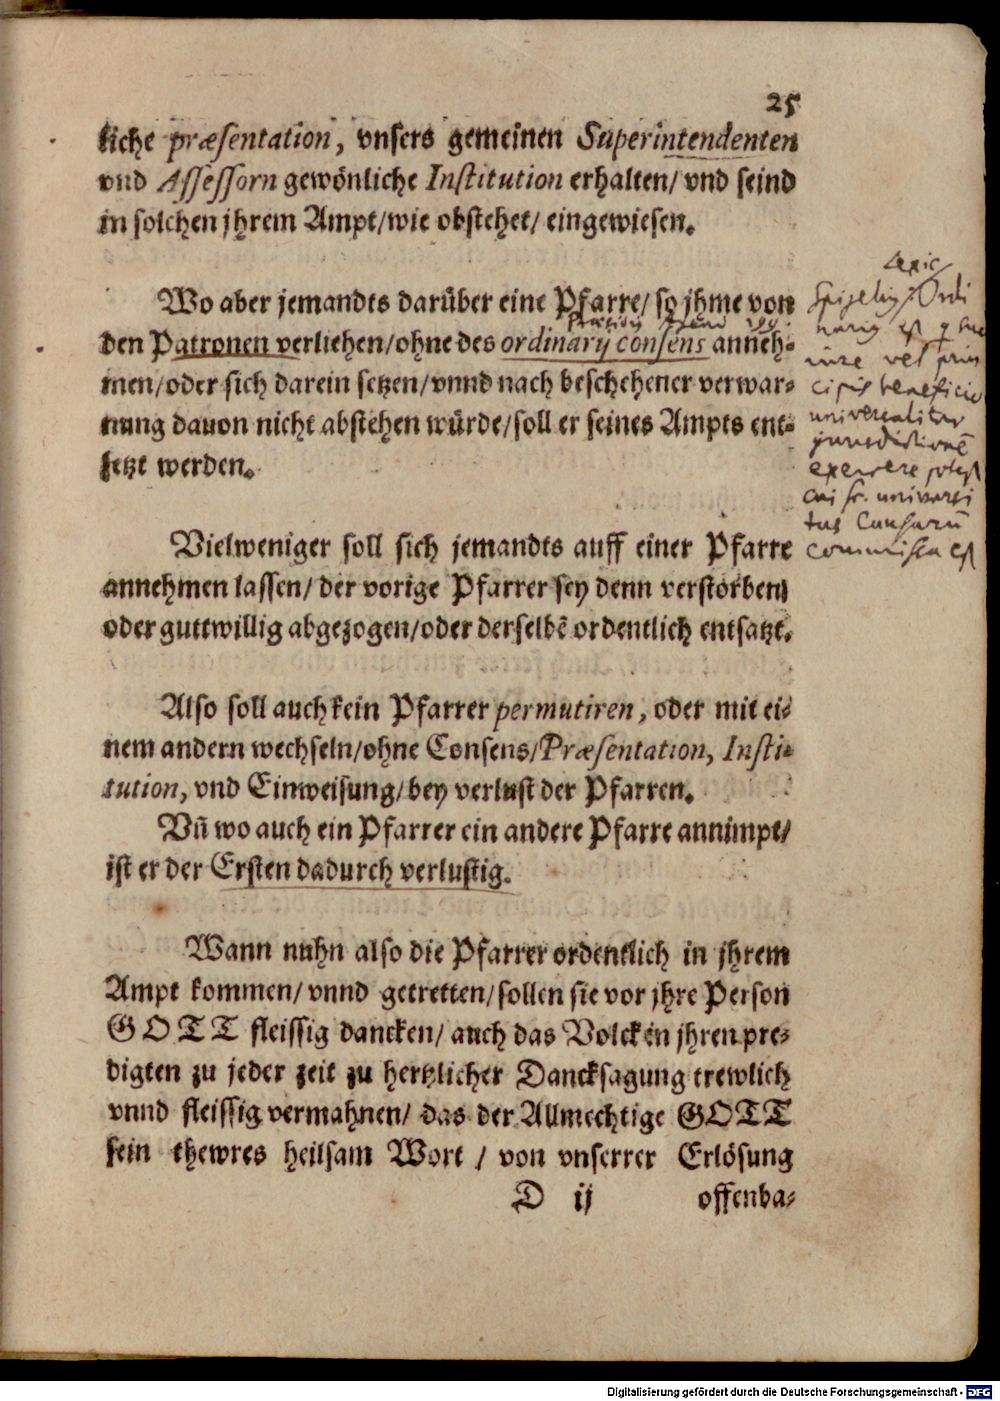 25
liche præsentation, vnsers gemeinen Superintendenten
vnd Assessorn gewönliche Institution erhalten/ vnd seind
in solchen jhrem Ampt/wie obstehet/ eingewiesen.
Wo aber jemandts darüber eine Pfarre/ so jhme von
den Patronen verliehen/ohne des ordinarij consens anneh-
men/oder sich darein setzen/vnnd nach beschehener verwar-
nung dauon nicht abstehen würde/soll er seines Ampts ent-
setzt werden.
Vielweniger soll sich jemandts auff einer Pfarre
annehmen lassen/ der vorige Pfarrer sey denn verstorben/
oder guttwillig abgezogen/oder derselbẽ ordentlich entsatzt.
Also soll auch kein Pfarrer permutiren, oder mit ei-
nem andern wechseln/ohne Consens/Præsentation, Insti-
tution, vnd Einweisung/bey verlust der Pfarren.
Vñ wo auch ein Pfarrer ein andere Pfarre annimpt/
ist er der Ersten dadurch verlustig.
Wann nuhn also die Pfarrer ordentlich in jhrem
Ampt kommen/ vnnd getretten/sollen sie vor jhre Person
GOTT fleissig dancken/ auch das Volck in jhren pre-
digten zu jeder zeit zu hertzlicher Dancksagung trewlich
vnnd fleissig vermahnen/ das der Allmechtige GOTT
sein thewres heilsam Wort / von vnserrer Erlösung
D ij offenba-
Ordi
est
iure vel prin
cipis beneficio
universaliter
jurisdictionẽ
exercere potest
universi
tas Causarũ
commissa est
Digitalisierung gefördert durch die Deutsche Forschungsgemeinschaft - DFG